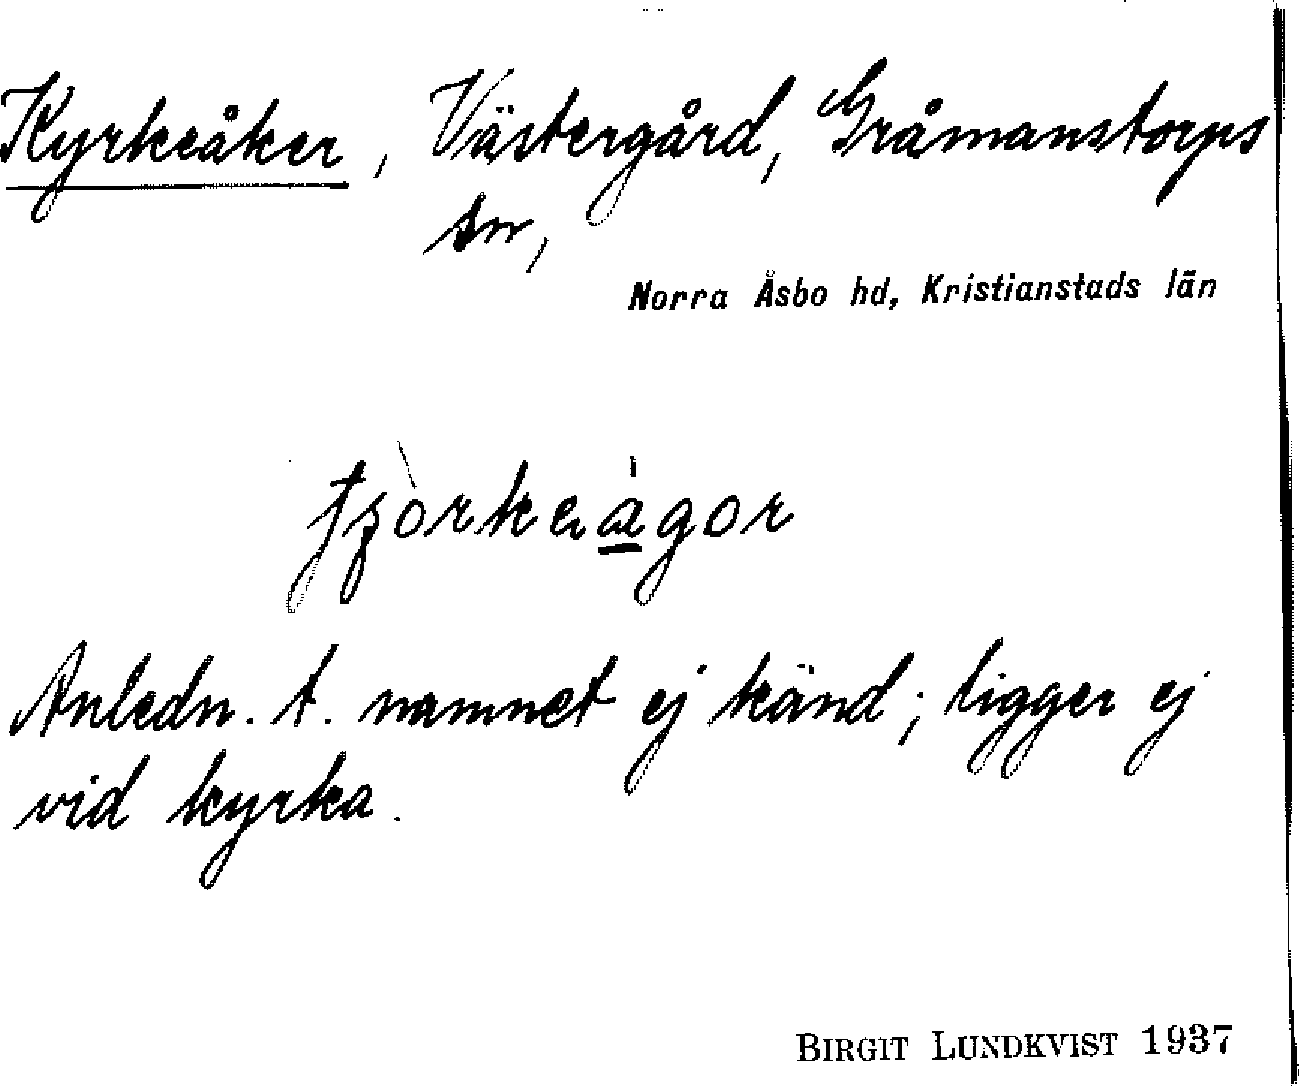 Kyrkeåker, Västergård, Gråmanstorps
sn,
Norra Åsbo hd, Kristianstads län
Anledn. t. namnet ej känd; ligger ej
vid kyrka.
BIRGIT LUNDKVIST 1937